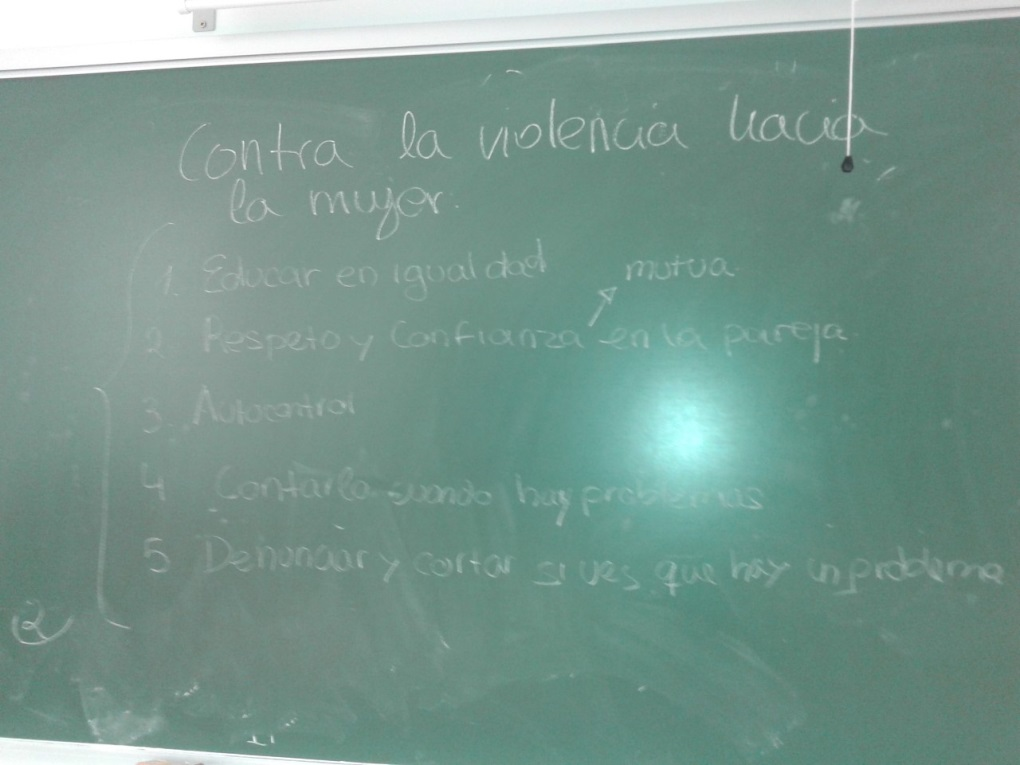 Contra la violencia hacia
la mujer.
1. Educar en igualdad
mutua.
2 Respeto y Confianza en la pareja.
3. Autocontrol
4 Contarlo cuando hay problemas
5 Denunciar y cortar si ves que hay un problema
2